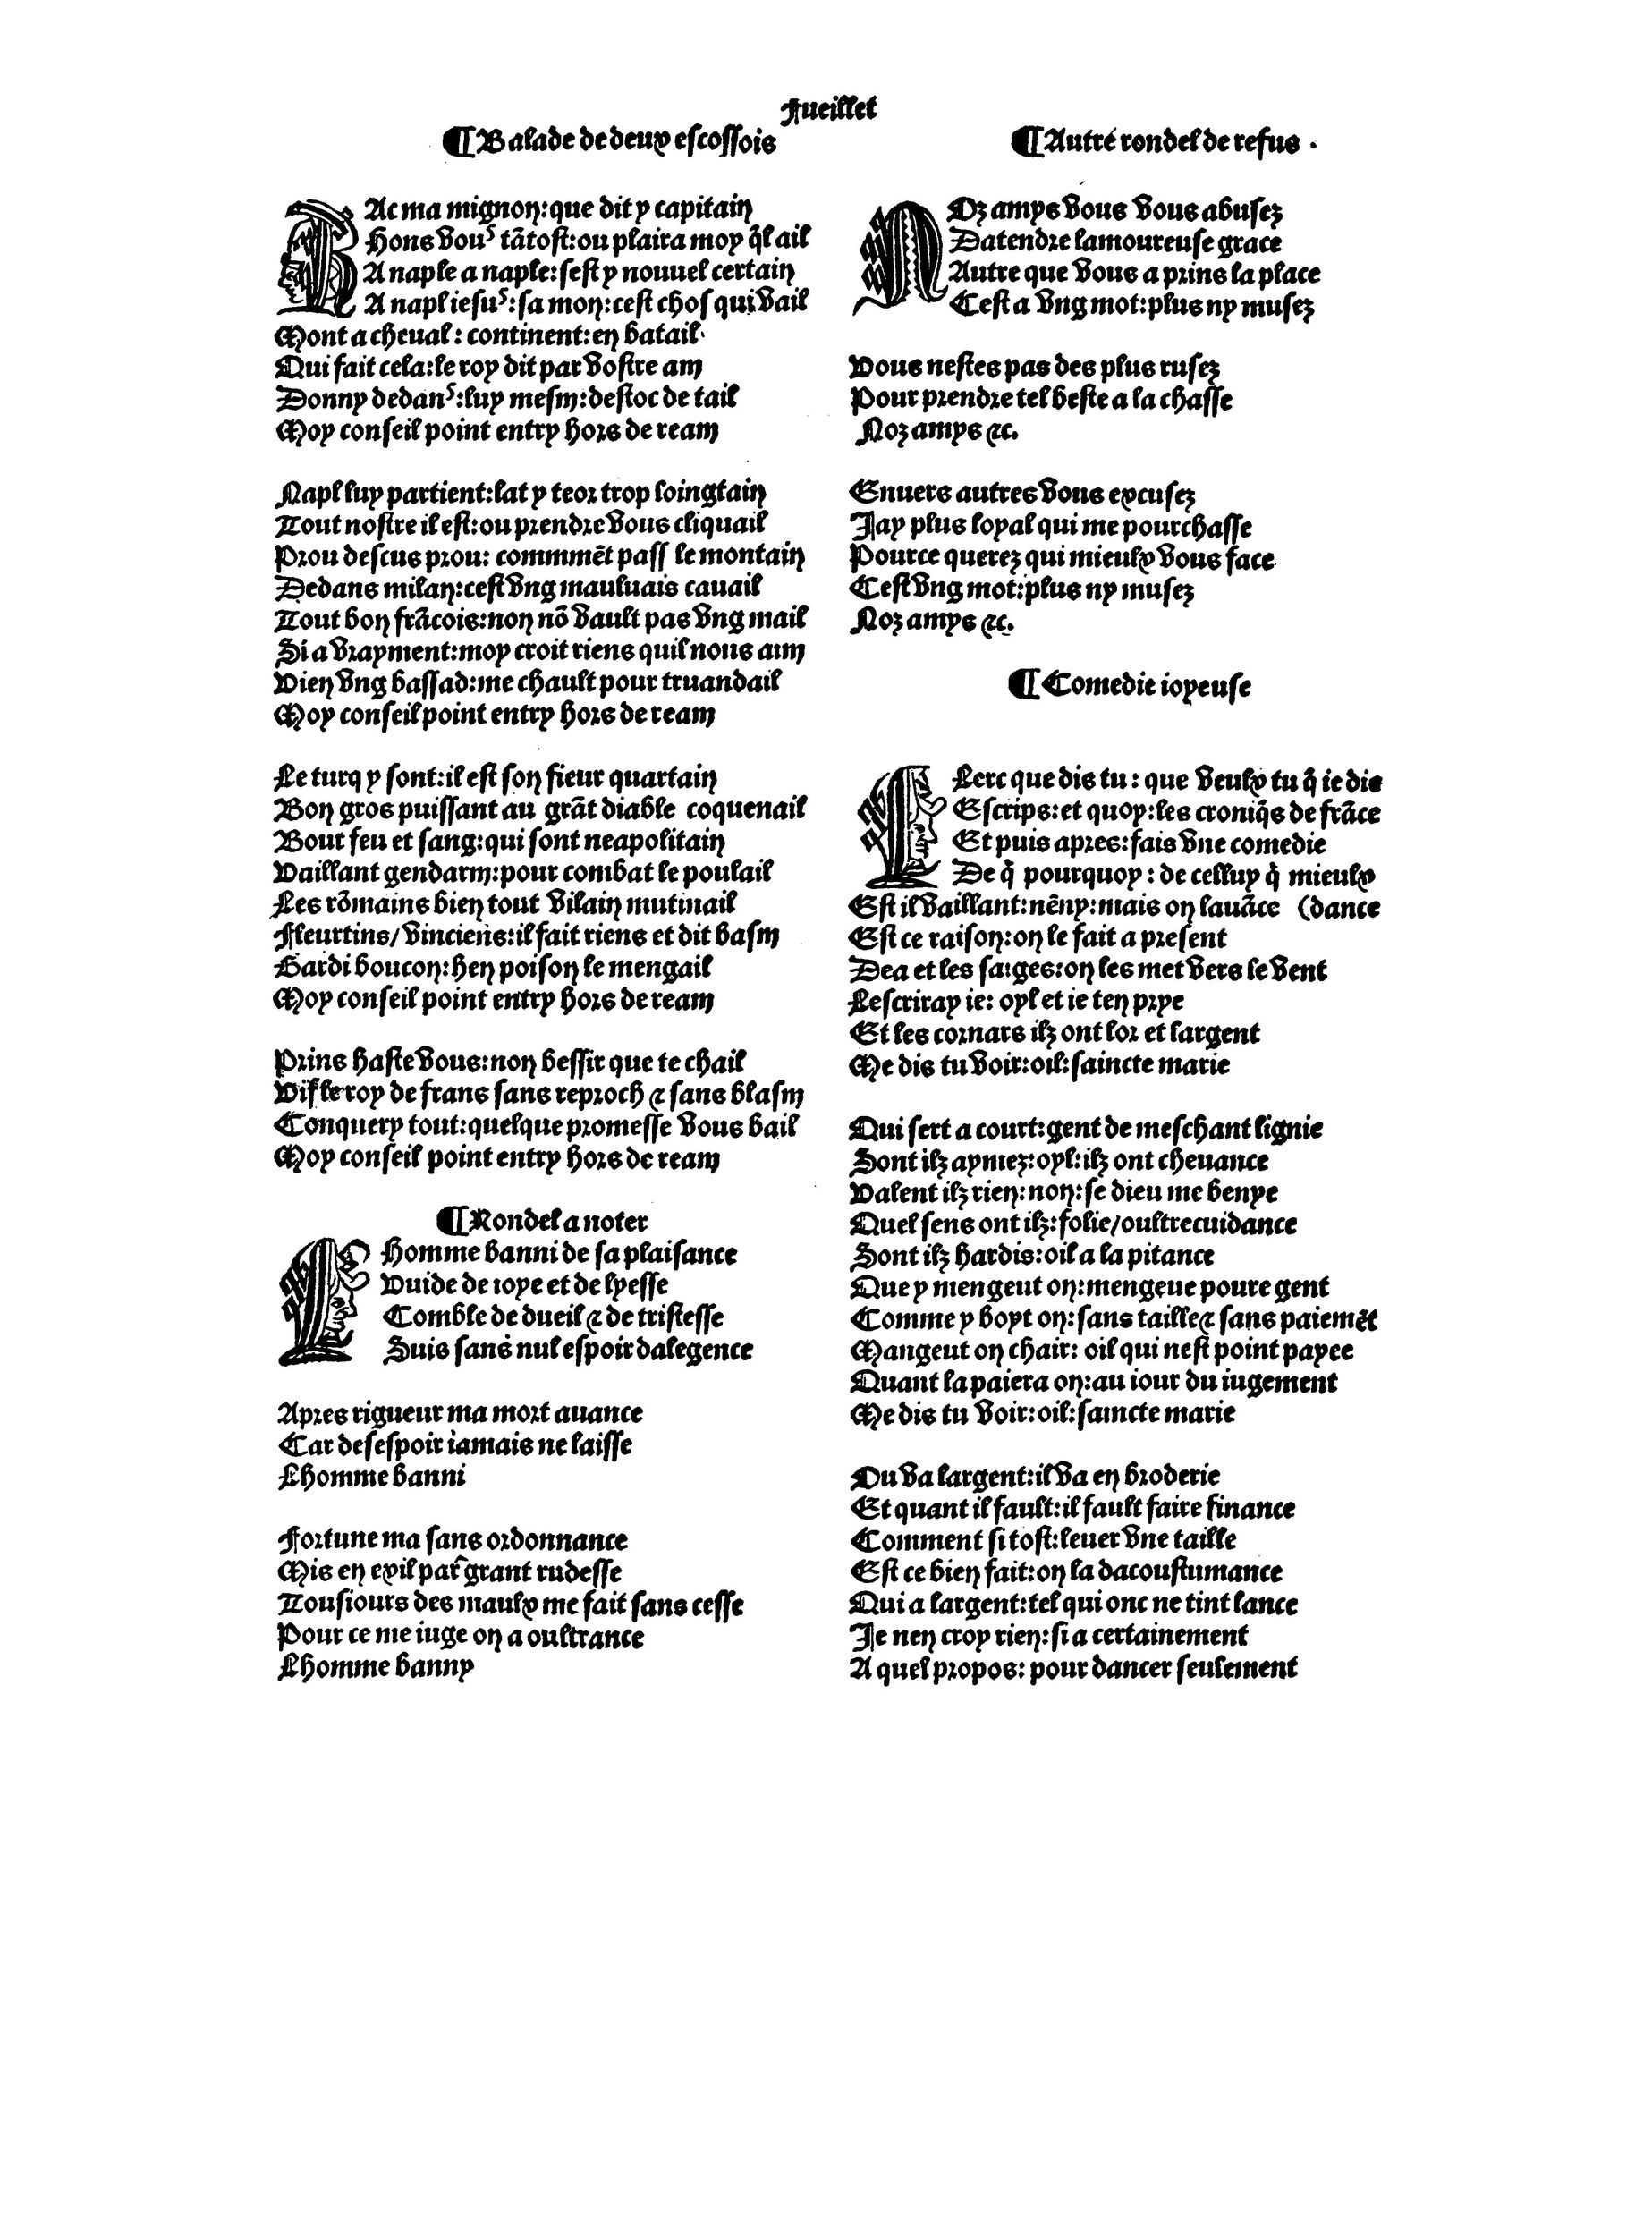 Fueillet
¶Balade de deux escossois
BAc ma mignon:que dit y capitain
Hons vouˢ tãtost:ou plaira moy q̃l ail
A naple a naple:sest y nouuel certain
A napl iesuˢ:sa mon:cest chos qui vail
Mont a cheual: continent:en batail
Qui fait cela:le roy dit par vostre am
Donny dedanˢ:luy mesm:destoc de tail
Moy conseil point entry hors de ream
Napl luy partient:lat y teor trop loingtain
Tout nostre il est:ou prendre vous cliquail
Prou descus prou: commmẽt pass le montain
Dedans milan:cest vng mauluais cauail
Tout bon frãcois:non nõ vault pas vng mail
Si a vrayment:moy croit riens quil nous aim
Vien vng bassad:me chault pour truandail
Moy conseil point entry hors de ream
Le turq y sont:il est son fieur quartain
Bon gros puissant au grãt diable coquenail
Bout feu et sang:qui sont neapolitain
Vaillant gendarm:pour combat le poulail
Les rõmains bien tout vilain mutinail
Fleurtins/vinciens:il fait riens et dit basm
Gardi boucon:hen poison le mengail
Moy conseil point entry hors de ream
Prins haste vous:non bessir que te chail
Vif le roy de frans sans reproch ⁊ sans blasm
Conquery tout:quelque promesse vous bail
Moy conseil point entry hors de ream
¶Rondel a noter
LHomme banni de sa plaisance
Vuide de ioye et de lyesse
Comble de dueil ⁊ de tristesse
Suis sans nul espoir dalegence
Apres rigueur ma mort auance
Car desespoir iamais ne laisse
Lhomme banni
Fortune ma sans ordonnance
Mis en exil par grant rudesse
Tousiours des maulx me fait sans cesse
Pour ce me iuge on a oultrance
Lhomme banny
¶Autre rondel de refus.
NOz amys vous vous abusez
Datendre lamoureuse grace
Autre que vous a prins la place
Cest a vng mot:plus ny musez
Vous nestes pas des plus rusez
Pour prendre tel beste a la chasse
Noz amys ⁊c.
Enuers autres vous excusez
Jay plus loyal qui me pourchasse
Pource querez qui mieulx vous face
Cest vng mot:plus ny musez
Noz amys ⁊c.
¶Comedie ioyeuse
CLerc que dis tu: que veulx tu q̃ ie die
Escrips:et quoy:les croniq̃s de frãce
Et puis apres:fais vne comedie
De q̃ pourquoy: de celluy q̃ mieulx
Est il vaillant:nẽny:mais on lauãce (dance
Est ce raison:on le fait a present
Dea et les saiges:on les met vers le vent
Lescriray ie: oyl et ie ten prye
Et les cornars ilz ont lor et largent
Me dis tu voir:oil:saincte marie
Qui sert a court:gent de meschant lignie
Sont ilz aymez:oyl:ilz ont cheuance
Valent ilz rien:non:se dieu me benye
Quel sens ont ilz:folie/oultrecuidance
Sont ilz hardis:oil a la pitance
Que y mengeut on:mengeue poure gent
Comme y boyt on:sans taille ⁊ sans paiemẽt
Mangeut on chair: oil qui nest point payee
Quant la paiera on:au iour du iugement
Me dis tu voir:oil:saincte marie
Ou va largent:il va en broderie
Et quant il fault:il fault faire finance
Comment si tost:leuer vne taille
Est ce bien fait:on la dacoustumance
Qui a largent:tel qui onc ne tint lance
Je nen croy rien:si a certainement
A quel propos: pour dancer seulement